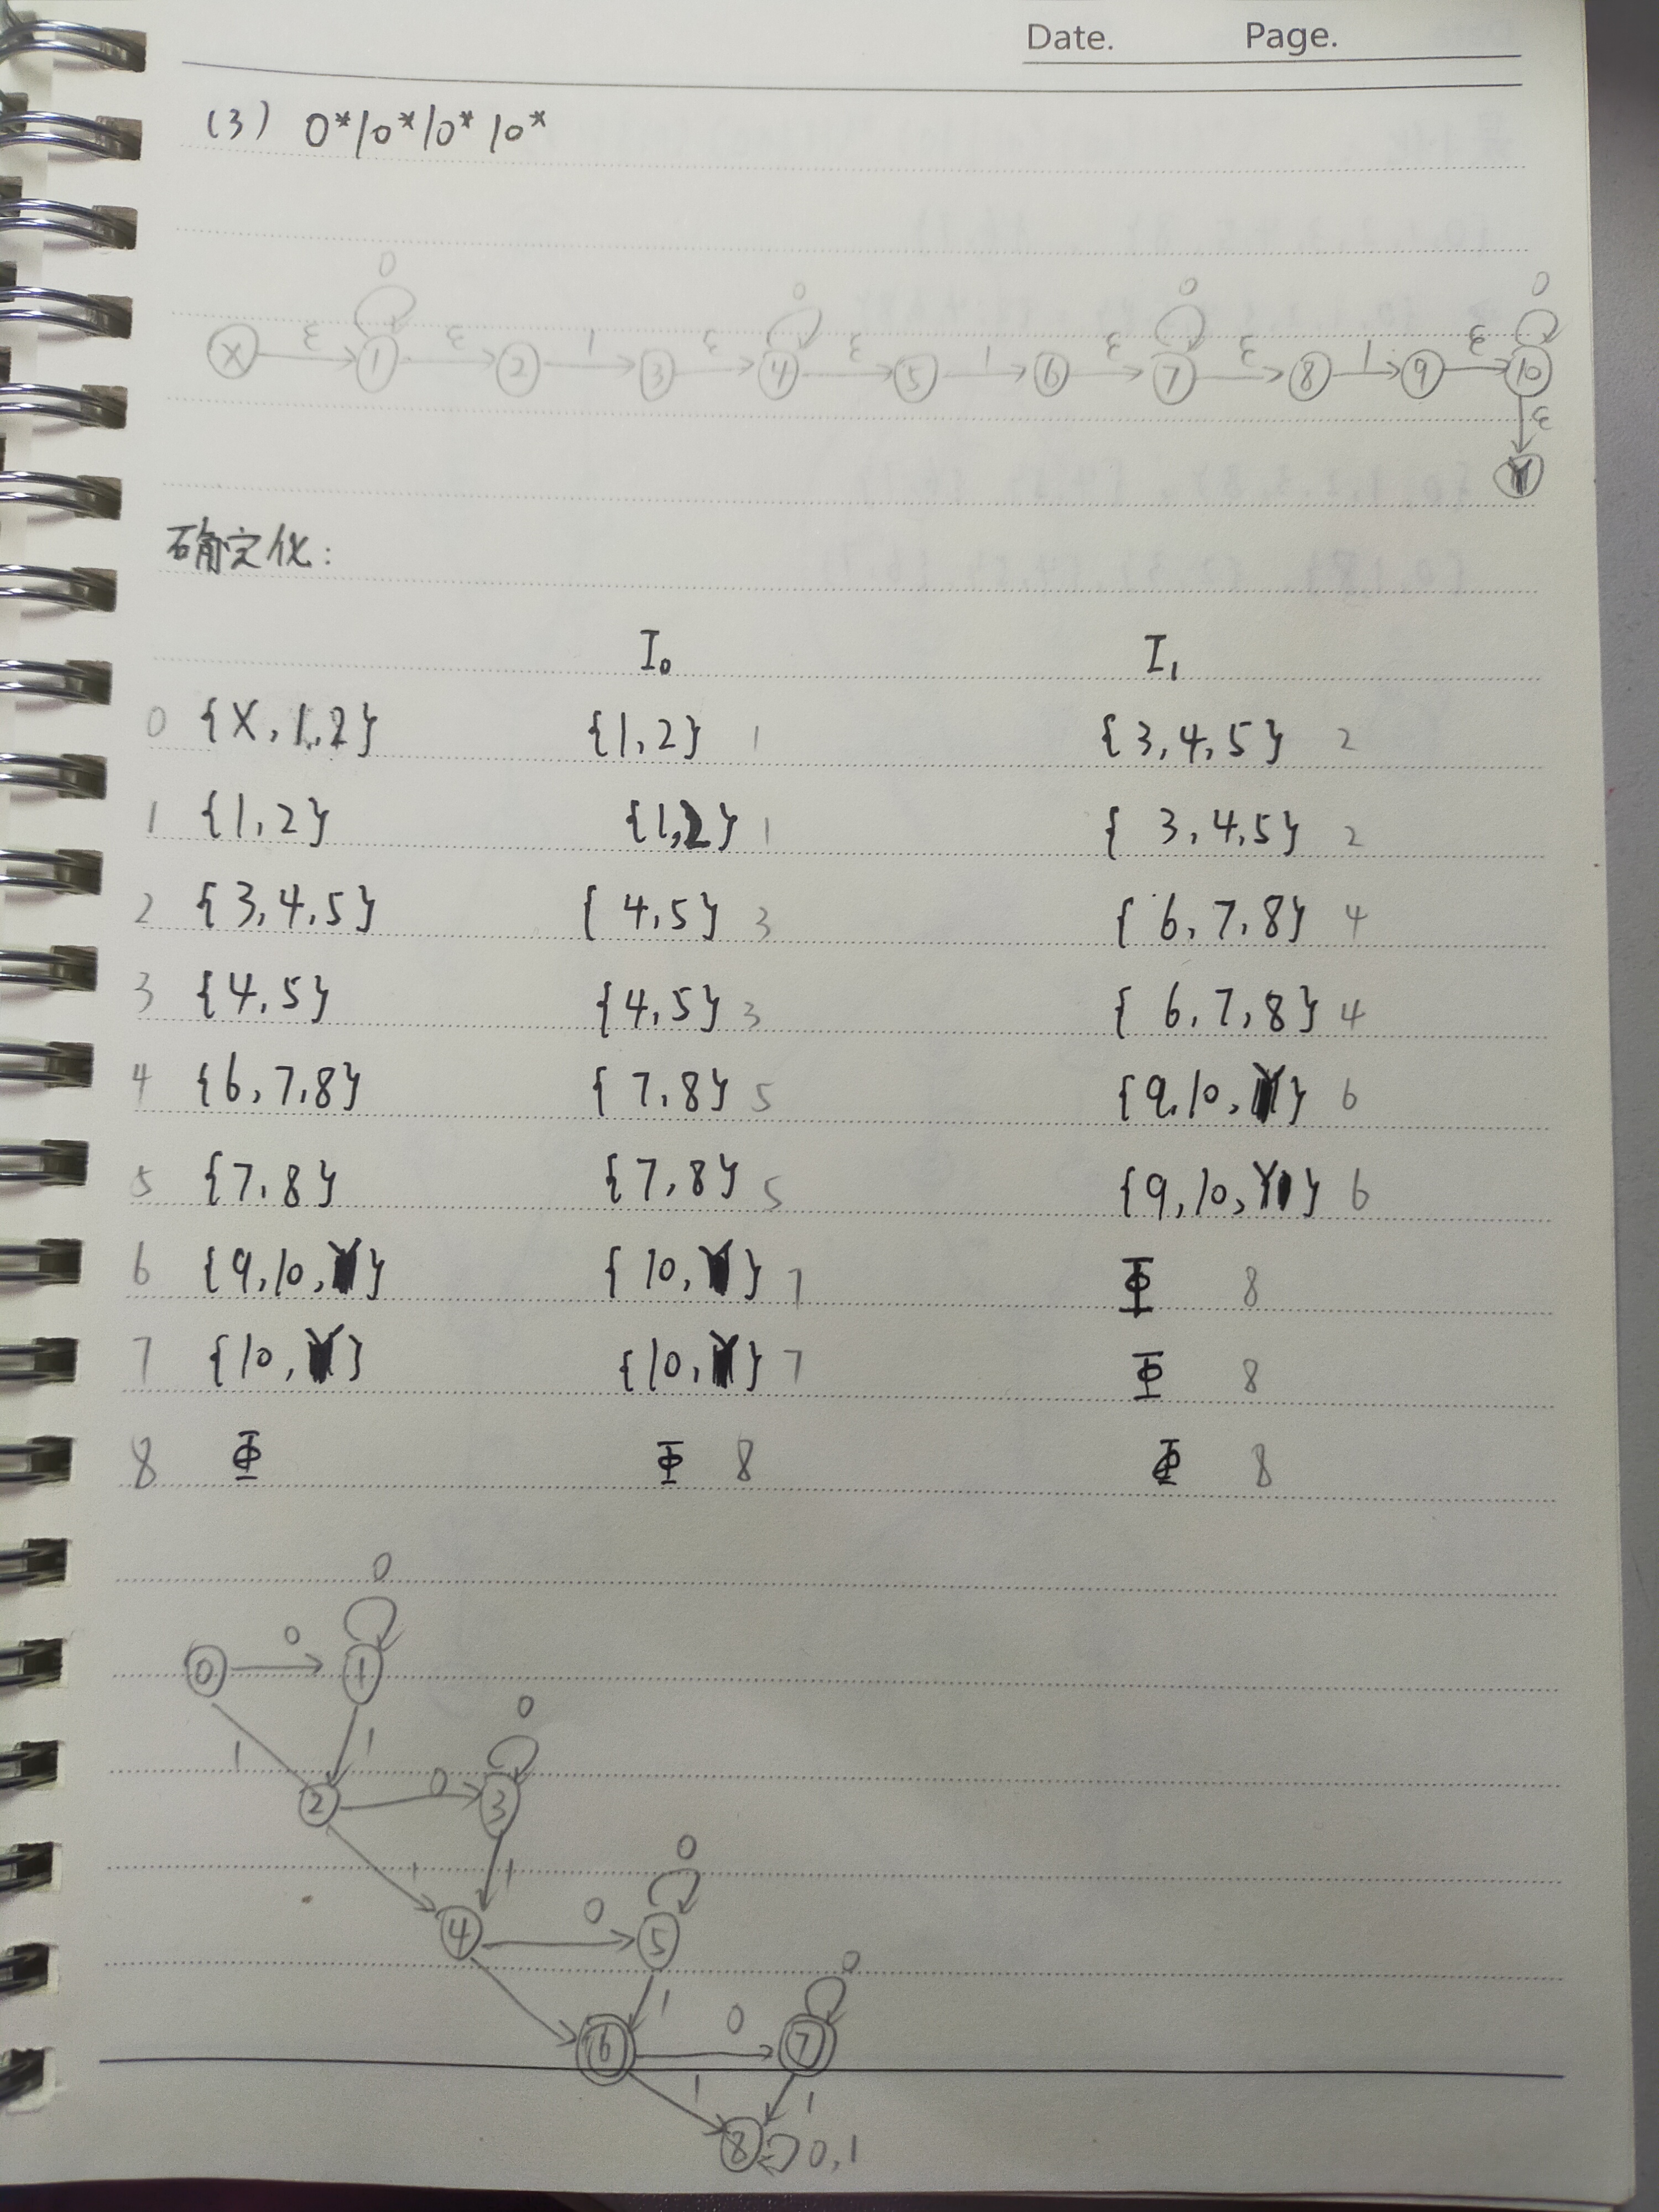 Date. Page.
(3) 0*10*10*10*
0 0 0 0
X ε 1 ε 2 1 3 ε 4 ε 5 1 6 ε 7 ε 8 1 9 ε 10
ε
Y
确定化:
I₀ I₁
0 {X,1,2} {1,2} 1 {3,4,5} 2
1 {1,2} {1,2} 1 {3,4,5} 2
2 {3,4,5} {4,5} 3 {6,7,8} 4
3 {4,5} {4,5} 3 {6,7,8} 4
4 {6,7,8} {7,8} 5 {9,10,Y} 6
5 {7,8} {7,8} 5 {9,10,Y} 6
6 {9,10,Y} {10,Y} 7 Φ 8
7 {10,Y} {10,Y} 7 Φ 8
8 Φ Φ 8 Φ 8
0
0 0 1
1 1 0
2 0 3
1 1 0
4 0 5
1 0
6 0 7
1 1
8 0,1